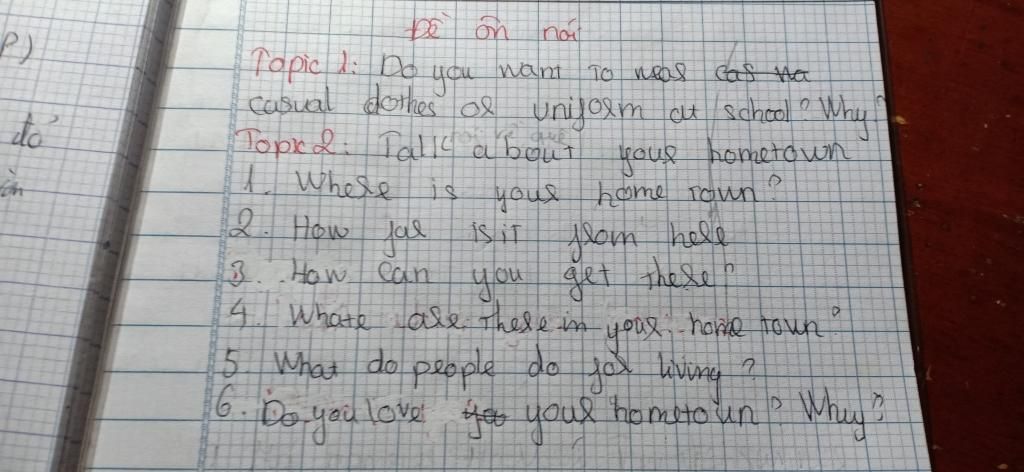 P)
đó
Đề ôn nói
Topic 1: Do you want to wear cas
casual clothes or uniform at school? Why?
Topic 2: Talk about your hometown
1. Where is your home town?
2. How far is it from here
3. How can you get there?
4. Whate are there in your home town?
5. What do people do for living?
6. Do you love your hometown? Why?